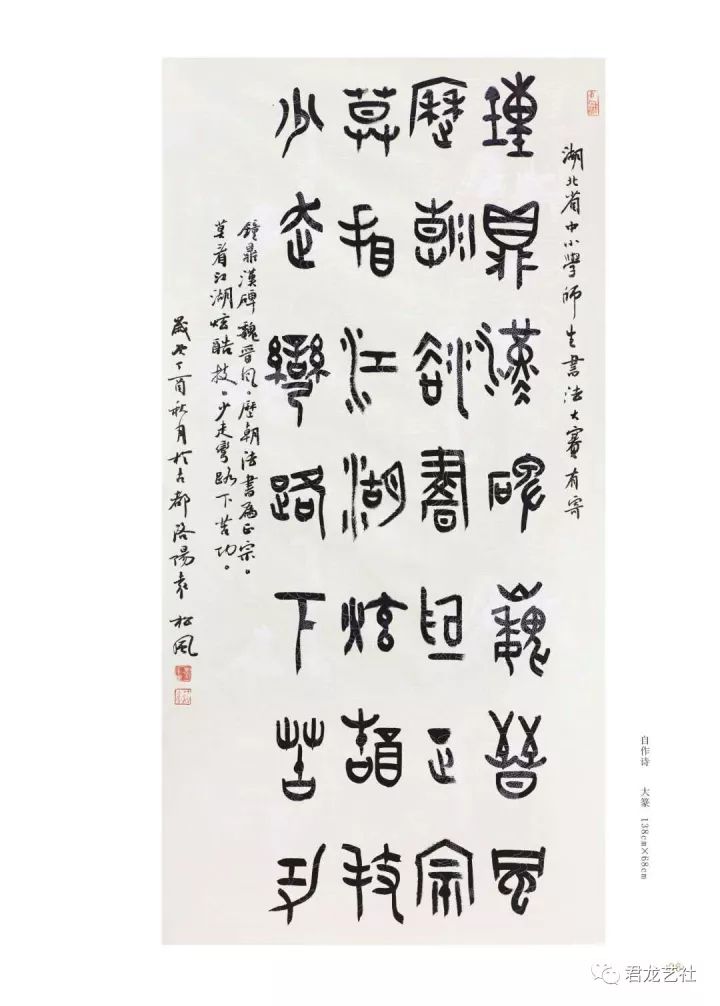 湖北省中小學師生書法大賽有寄
鐘鼎漢碑魏晉風
歷朝法書為正宗
莫看江湖炫酷技
少走彎路下苦功
鐘鼎漢碑魏晉風。歷朝法書為正宗。
莫看江湖炫酷技。少走彎路下苦功。
歲次丁酉秋月於古都洛陽袁松風
自作诗 大篆 138cm×68cm
君龙艺社